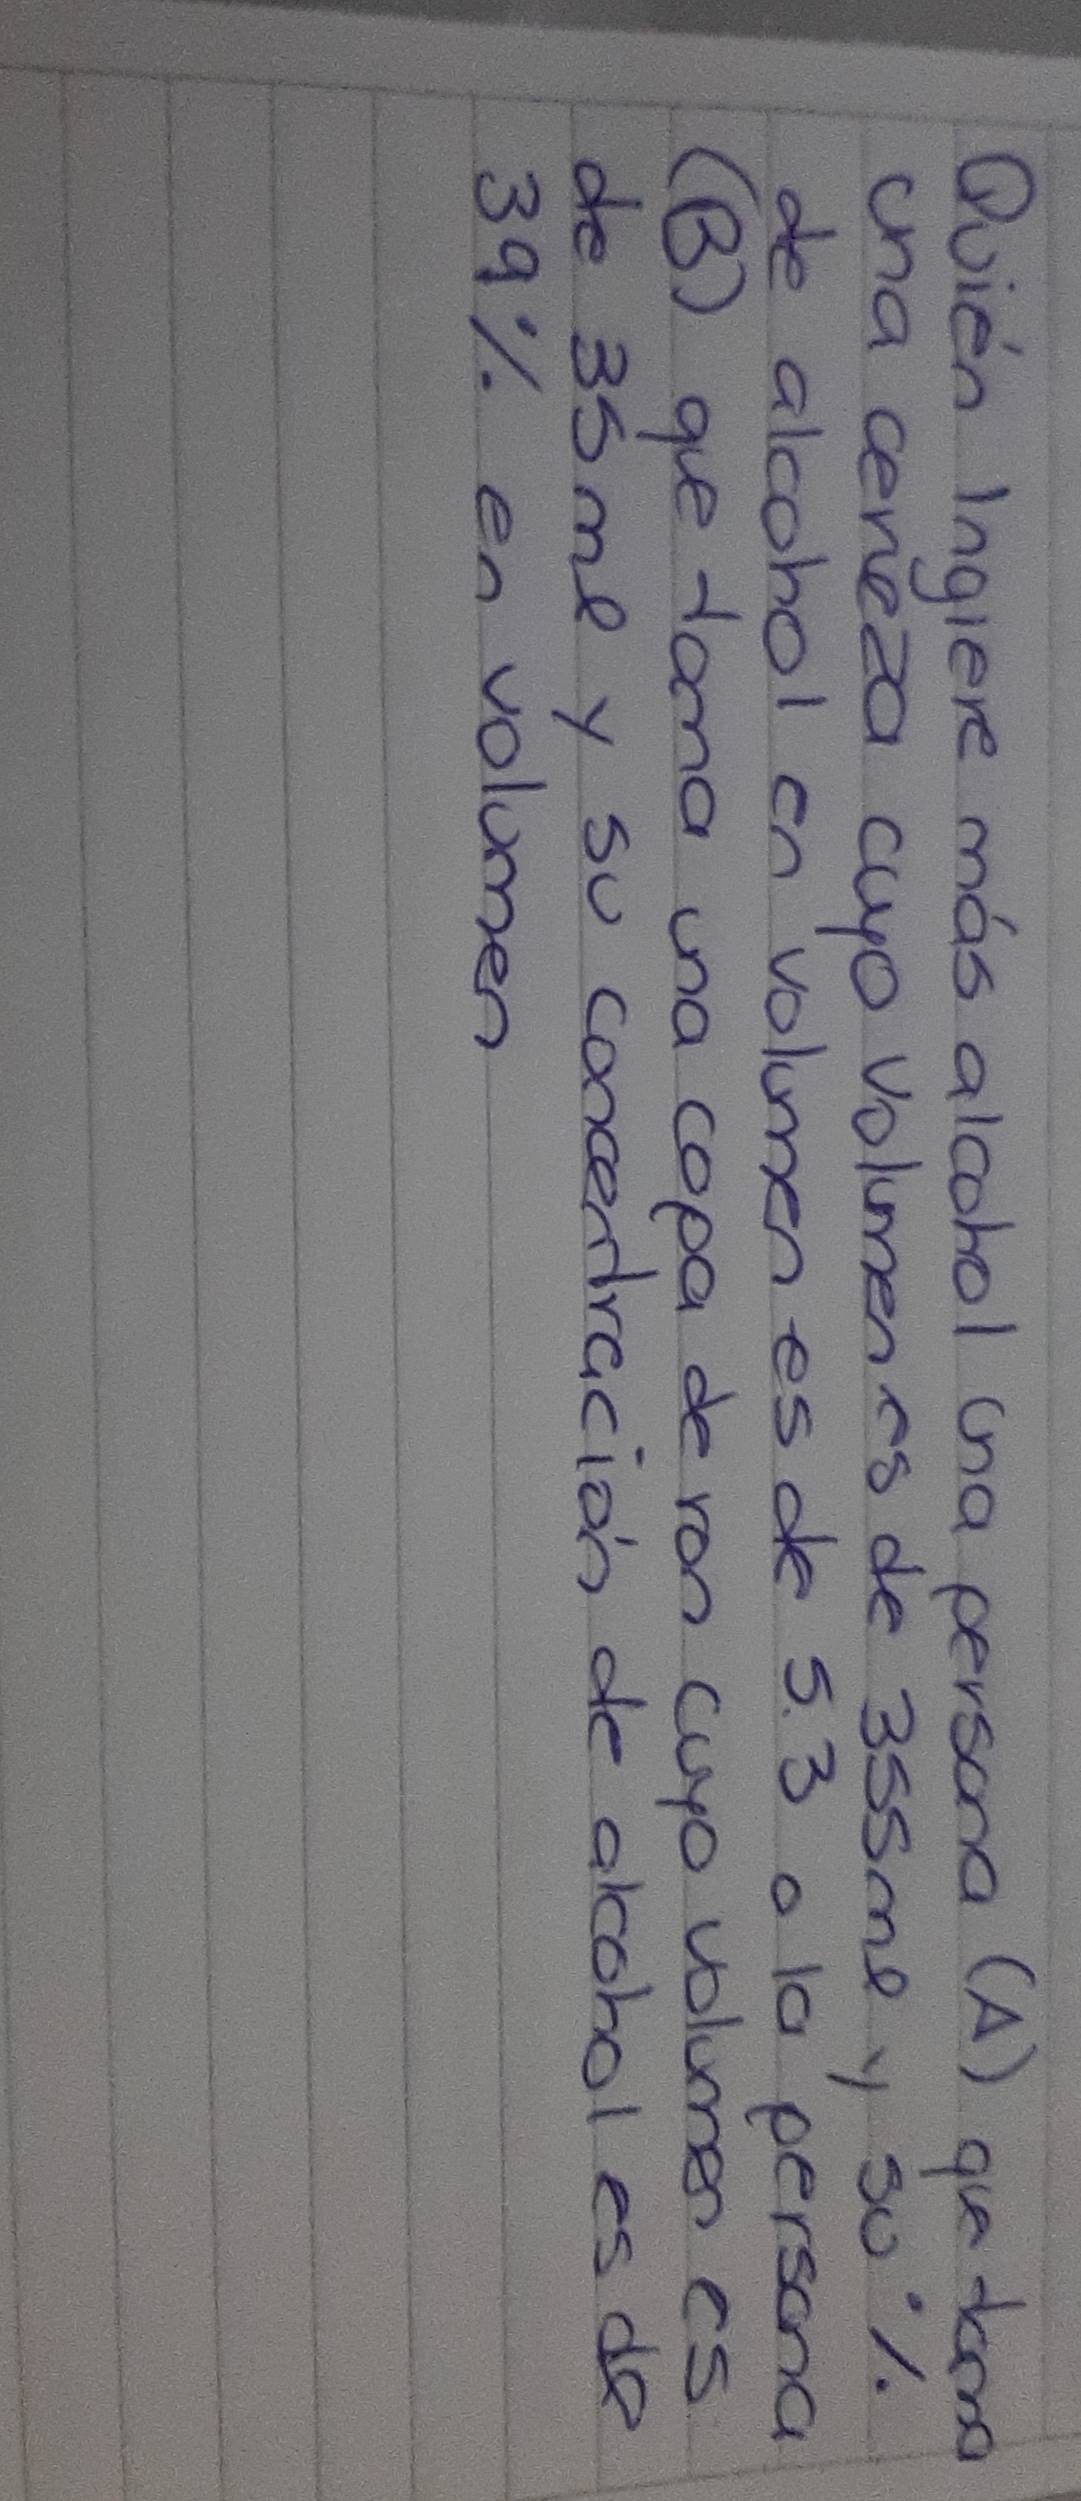 Quién Ingiere más alcohol una persona (A) que toma
una cerveza cuyo volumen es de 355ml y su %
de alcohol en volumen es de 5.3 o la persona
(B) que toma una copa de ron cuyo volumen es
de 35ml y su concentración de alcohol es de
39% en volumen